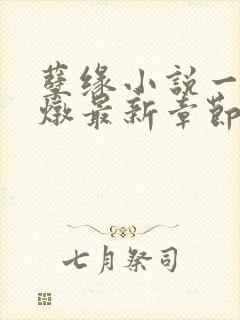 孽缘小說一
燉最新章節
七月祭司